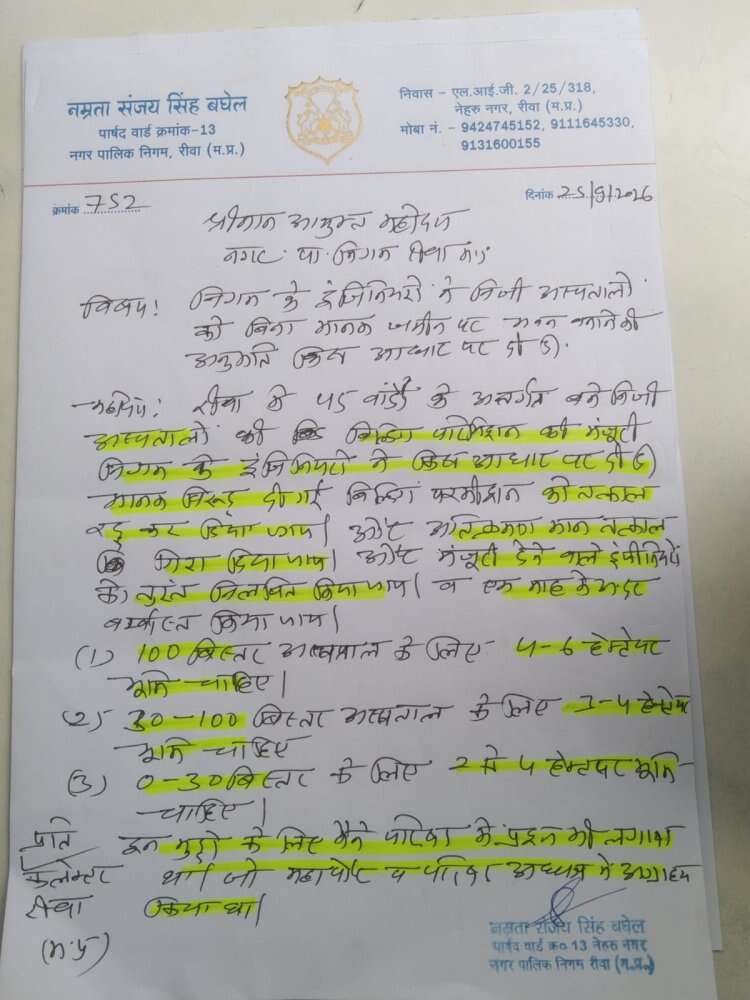 नम्रता संजय सिंह बघेल
पार्षद वार्ड क्रमांक-13
नगर पालिक निगम, रीवा (म.प्र.)
निवास - एल.आई.जी. 2/25/318,
नेहरु नगर, रीवा (म.प्र.)
मोबा नं. - 9424745152, 9111645330,
9131600155
क्रमांक 752
दिनांक 25/9/2026
श्रीमान आयुक्त महोदय
नगर पा. निगम रीवा म.प्र.
विषय! निगम के इंजिनियरों ने निजी अस्पतालों
को बिना मानक जमीन पर भवन बनाने की
अनुमति किस आधार पर दी है।
महोदय! रीवा में 45 वार्डों के अन्तर्गत बने निजी
अस्पतालों की बिल्डिंग परमिशन की मंजूरी
निगम के इंजिनियरों ने किस आधार पर दी है
मानक विरूद्ध दी गई बिल्डिंग परमीशन को तत्काल
रद्द कर दिया जाय। और अतिक्रमण मान तत्काल
गिरा दिया जाय। और मंजूरी देने वाले इंजीनियरों
को तुरंत निलंबित किया जाय। व एक माह के अन्दर
बर्खास्त किया जाय।
(1) 100 बिस्तर अस्पताल के लिए 4-6 हेक्टेयर
भूमि चाहिए।
(2) 30-100 बिस्तर अस्पताल के लिए 3-4 हेक्टेयर
भूमि चाहिए
(3) 0-30 बिस्तर के लिए 2 से 4 हेक्टयर भूमि
चाहिए।
इन मुद्दों के लिए मैंने परिषद में प्रश्न भी लगाया
था। जो महापौर व परिषद अध्यक्ष ने अग्राह्य
किया था।
प्रति
कलेक्टर
रीवा
(म.प्र)
नम्रता संजय सिंह बघेल
पार्षद वार्ड क्र० 13 नेहरू नगर
नगर पालिक निगम रीवा (म.प्र.)